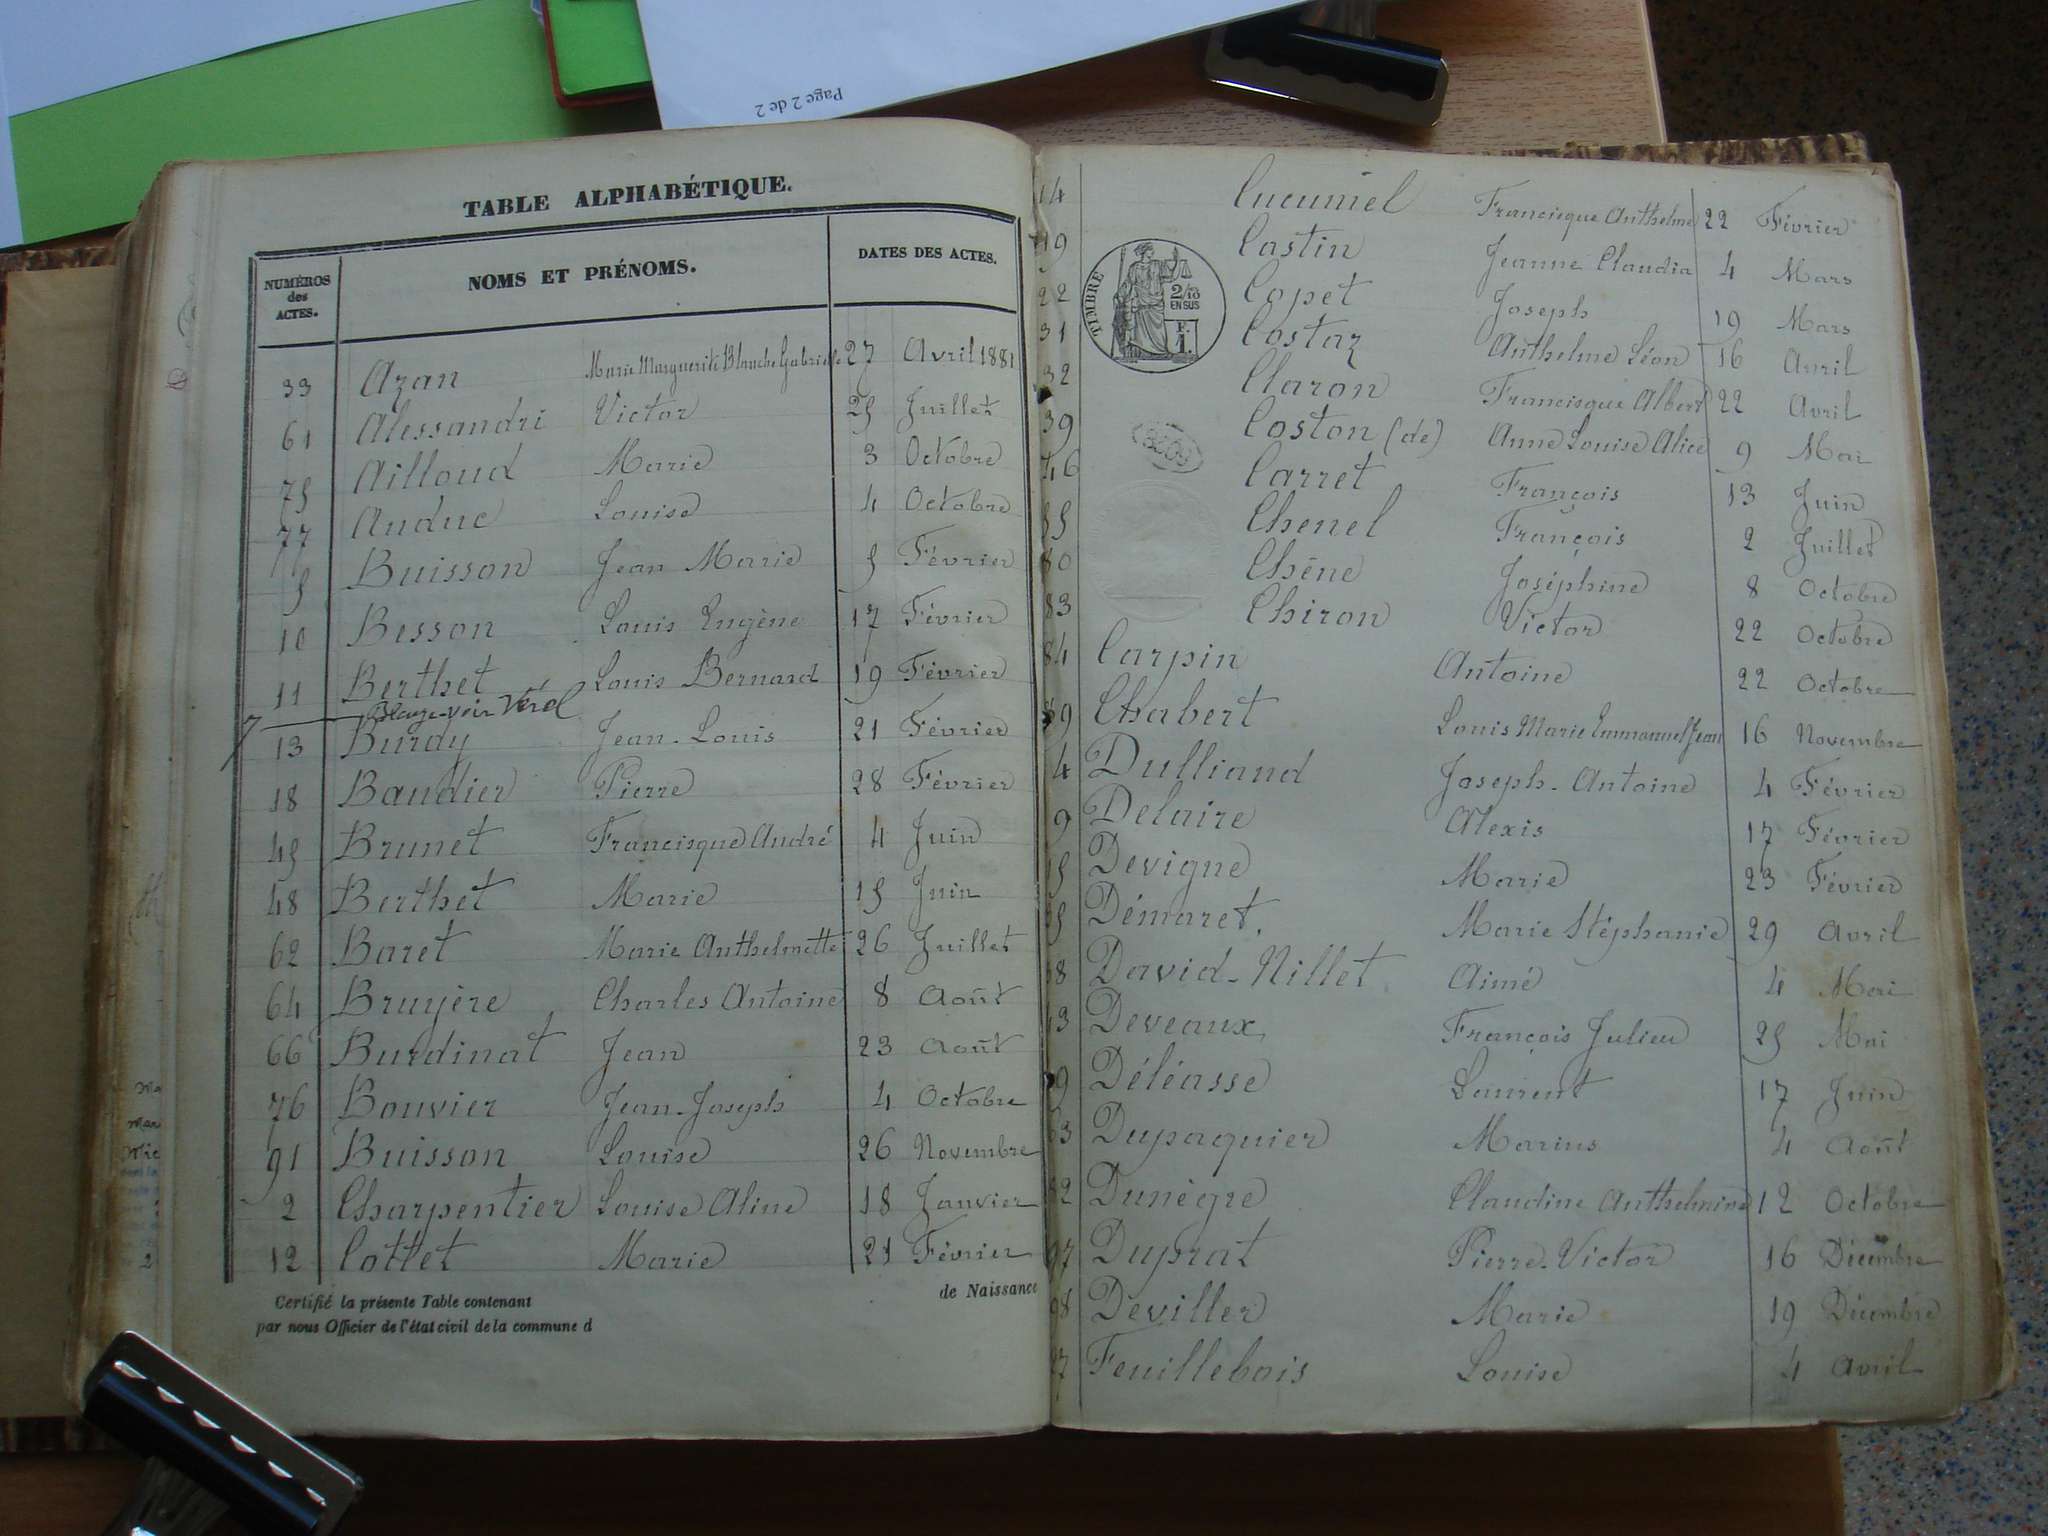 Page 2 de 2
TABLE ALPHABÉTIQUE.
NUMÉROS des ACTES. NOMS ET PRÉNOMS. DATES DES ACTES.
33 Azan Marie Marguerite Blanche Gabrielle 27 Avril 1881
61 Alessandri Victor 25 Juillet
75 Ailloud Marie 3 Octobre
77 Auduc Louise 4 Octobre
5 Buisson Jean Marie 5 Février
10 Besson Louis Eugène 17 Février
11 Berthet Louis Bernard 19 Février
7 Blaze voir Véral
13 Burdy Jean-Louis 21 Février
18 Baudier Pierre 28 Février
45 Brunet Francisque André 4 Juin
48 Berthet Marie 15 Juin
62 Baret Marie Anthelmette 26 Juillet
64 Bruyère Charles Antoine 8 Août
66 Burdinat Jean 23 Août
76 Bouvier Jean-Joseph 4 Octobre
91 Buisson Louise 26 Novembre
2 Charpentier Louise Aline 18 Janvier
12 Cottet Marie 21 Février
de Naissance
Certifié la présente Table contenant
par nous Officier de l'état civil de la commune d
14 Cucuniel Francisque Anthelme 22 Février
19 Castin Jeanne Claudia 4 Mars
22 Copet Joseph 19 Mars
TIMBRE
2/10 EN SUS
F. 1.
31 Costaz Anthelme Léon 16 Avril
32 Claron Francisque Albert 22 Avril
39 Coston (de) Anne Louise Alice 9 Mai
46 Carret François 13 Juin
55 Chenel François 2 Juillet
80 Chêne Joséphine 8 Octobre
83 Chiron Victor 22 Octobre
84 Carpin Antoine 22 Octobre
89 Chabert Louis Marie Emmanuel Jean 16 Novembre
4 Dulliand Joseph-Antoine 4 Février
9 Delaire Alexis 17 Février
15 Devigne Marie 23 Février
35 Démaret. Marie Stéphanie 29 Avril
38 David-Nillet Aimé 4 Mai
43 Deveaux François Julien 25 Mai
49 Déléasse Laurent 17 Juin
63 Dupaquier Marius 4 Août
82 Dunègre Claudine Anthelmine 12 Octobre
97 Duprat Pierre-Victor 16 Décembre
98 Deviller Marie 19 Décembre
27 Feuillebois Louise 4 Avril